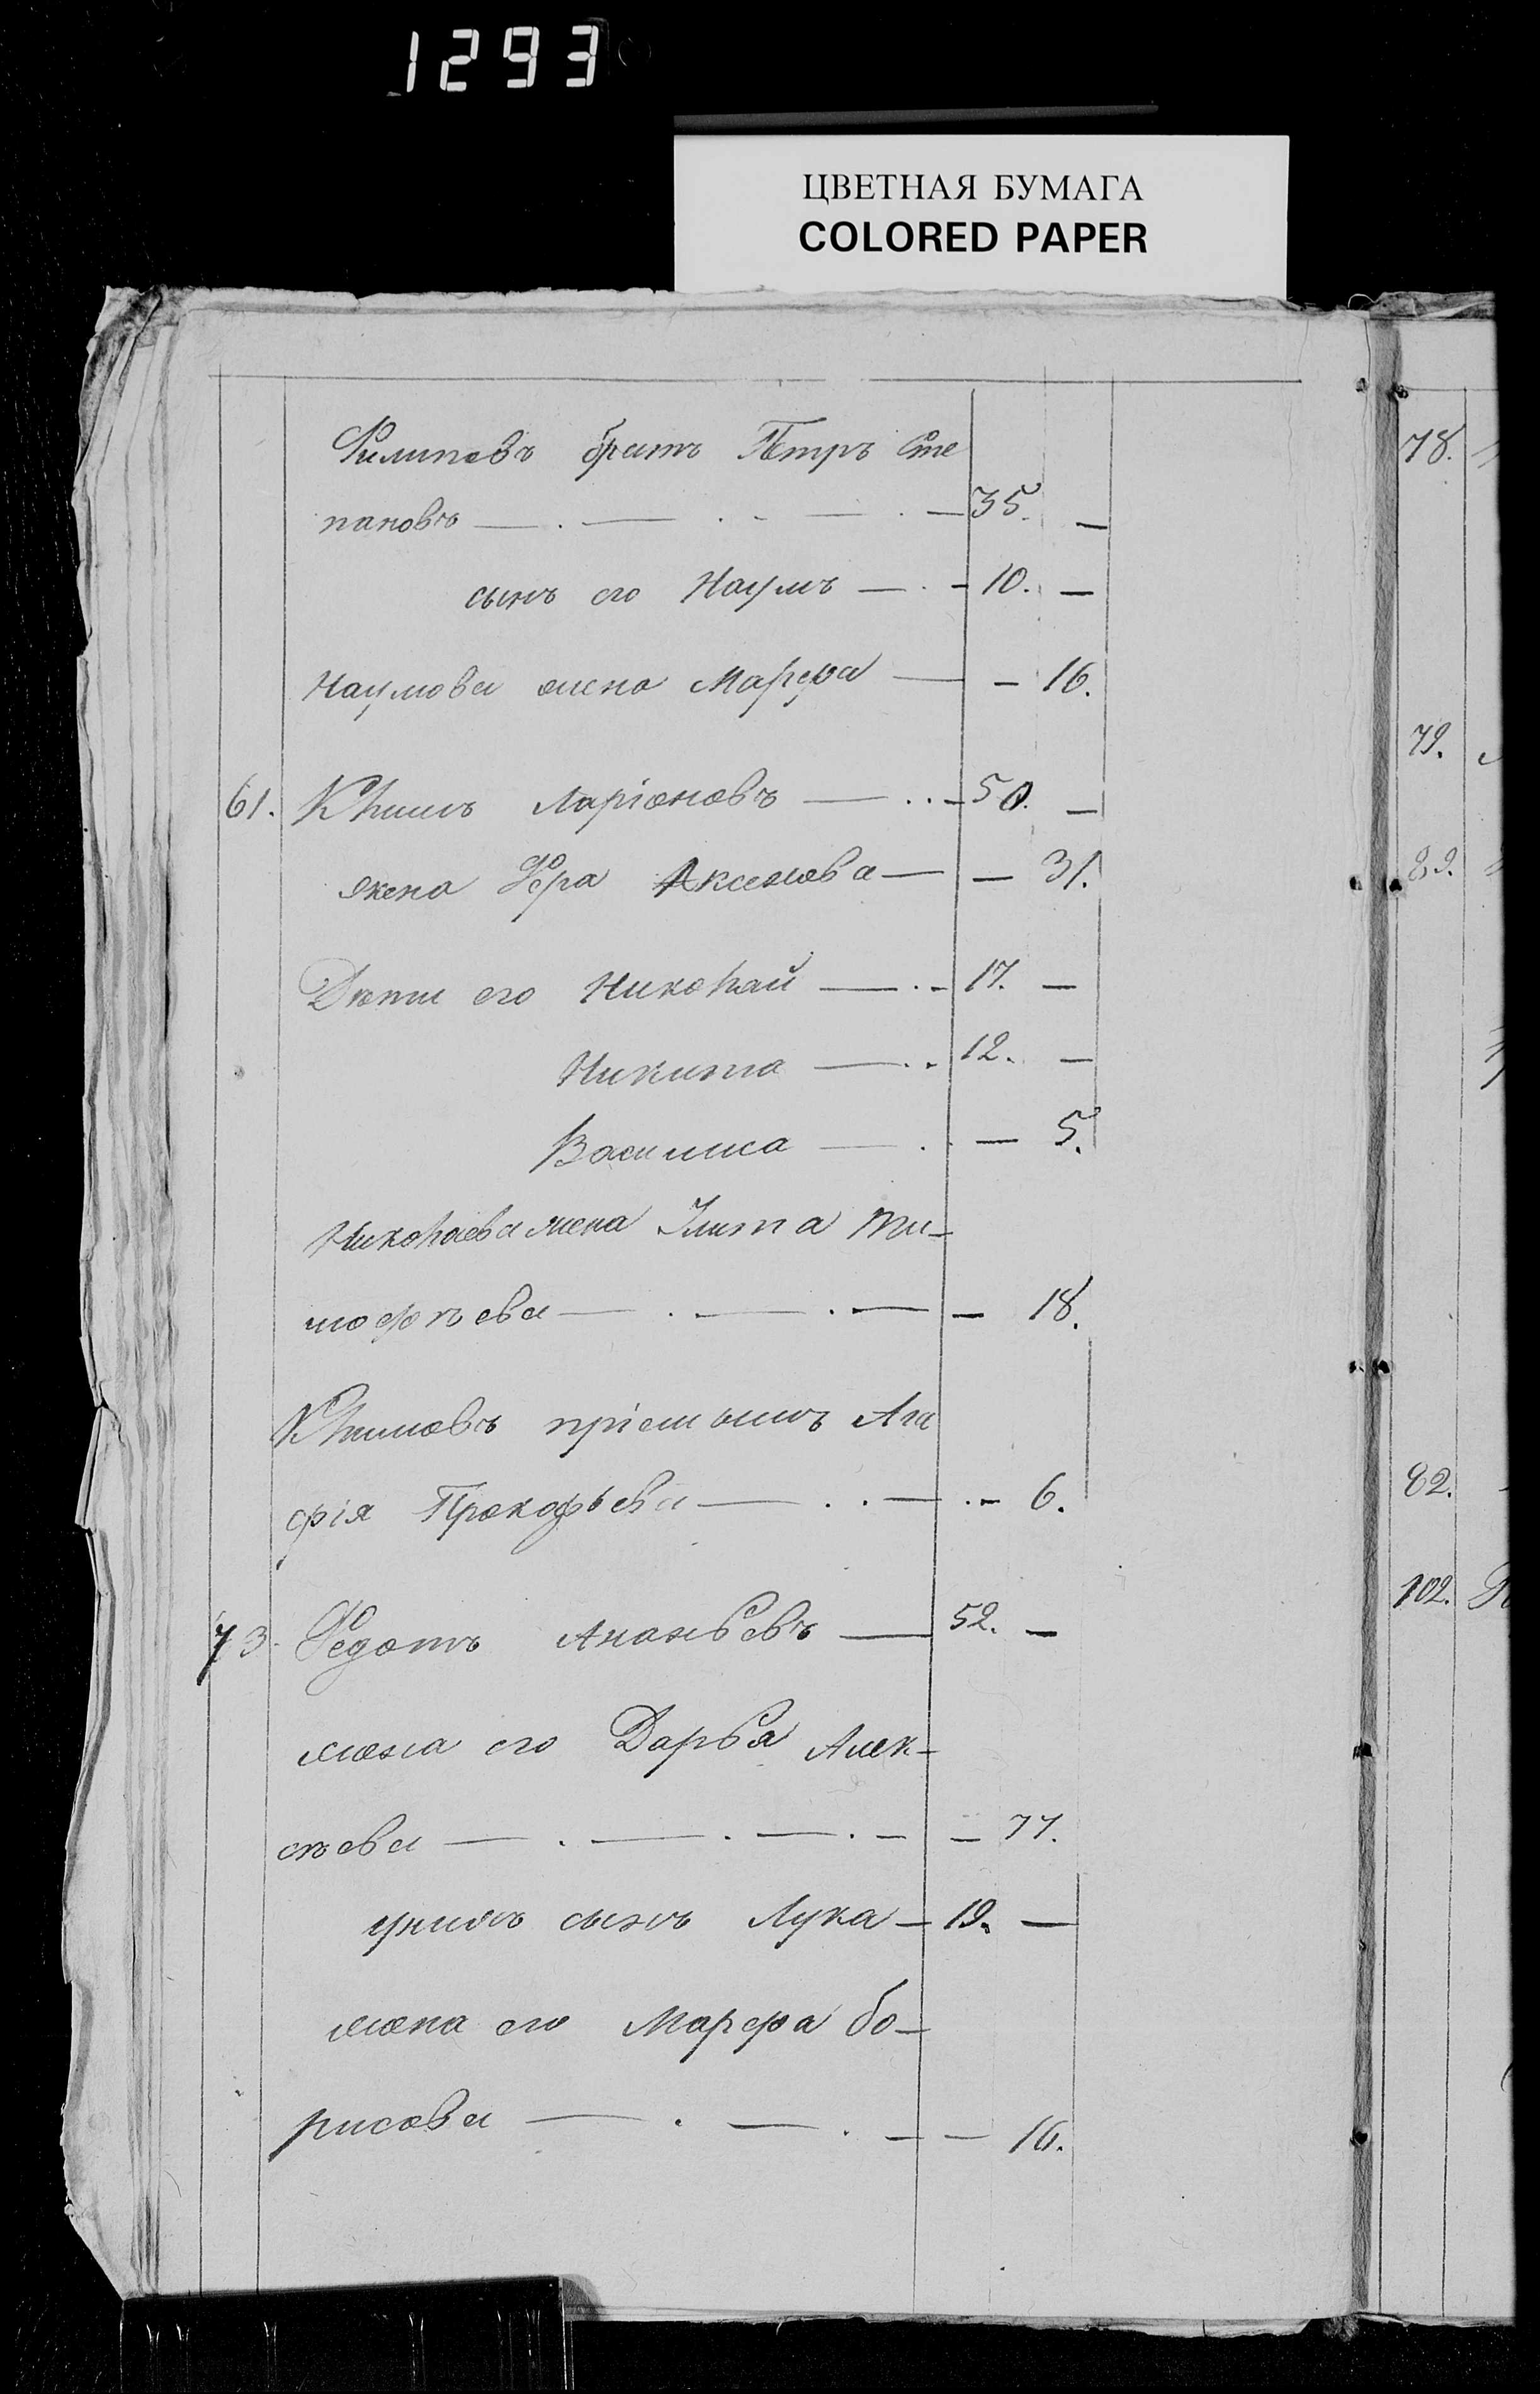 1293
ЦВЕТНАЯ БУМАГА
COLORED PAPER
Филиповъ братъ Петръ Сте
пановъ — . — . - — . — 35. —
сынъ его Наумъ — . - 10. —
Наумова жена Марфа — - 16.
61. Климъ Ларіоновъ — . . - 50. —
жена Аксенова — — 31.
Дѣти его Николай — . - 17. —
Никита — . . 12. —
Василиса — . — 5.
Николаева жена Улита Ти-
мофѣева — . — . — — 18.
Климовъ пріемышъ Ага
фія Прокофьева — . . — . - 6.
73. Федотъ Ананьевъ — 52. —
жена его Дарья Алек-
сѣева — . — . — . - — 77.
сынъ Лука — 19. —
жена его Марфа Бо-
рисова — . — . — — 16.
78.
79.
82.
102.